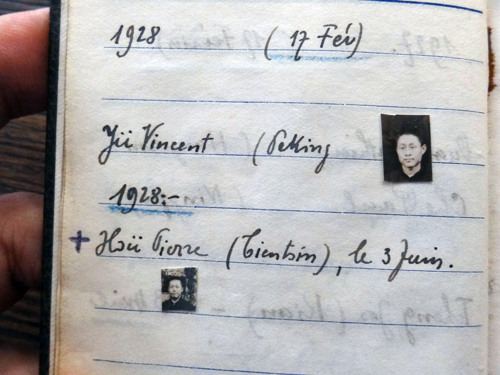 1928 (17 Fév)
Yü Vincent (Peking
1928:-
+ Hsü Pierre (Tientsin), le 3 Juin.